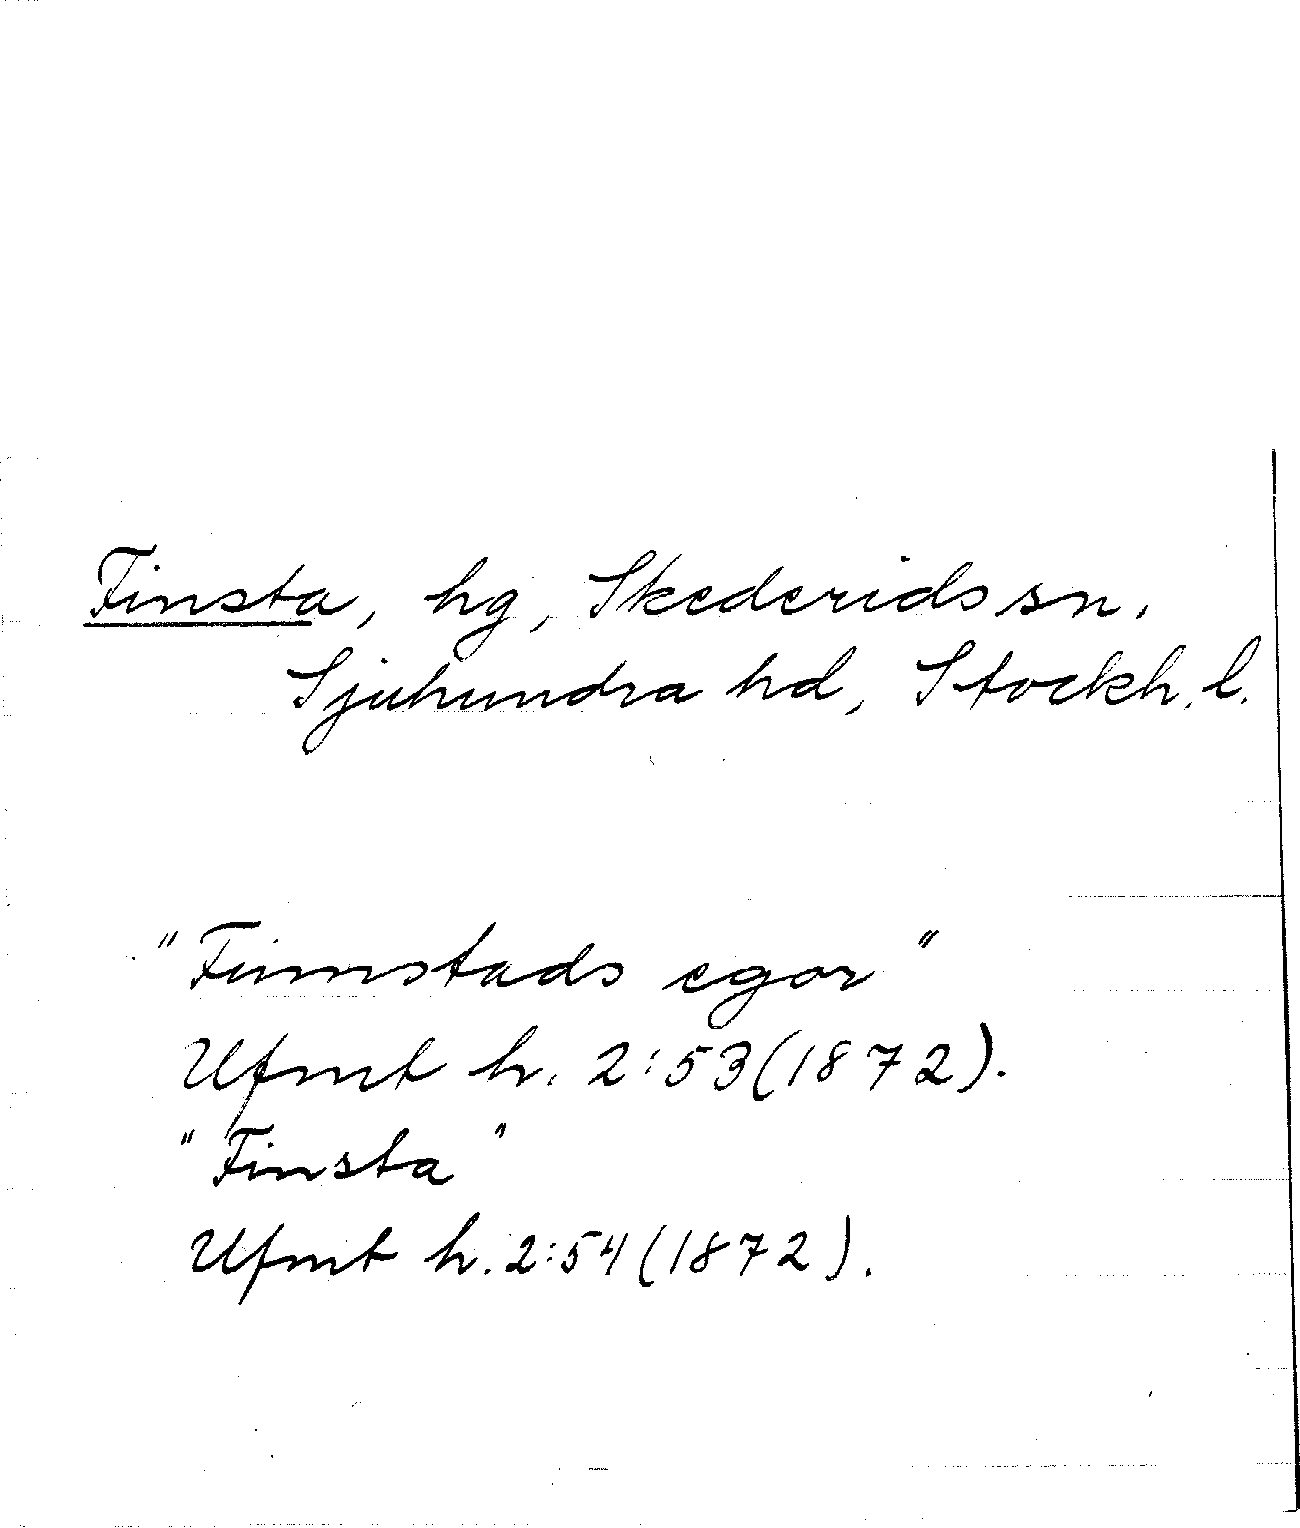 Finsta, hg, Skederids sn,
Sjuhundra hd, Stockh. l.
"Finnstads egor"
Ufmt h. 2:53 (1872).
"Finsta"
Ufmt h. 2:54 (1872).